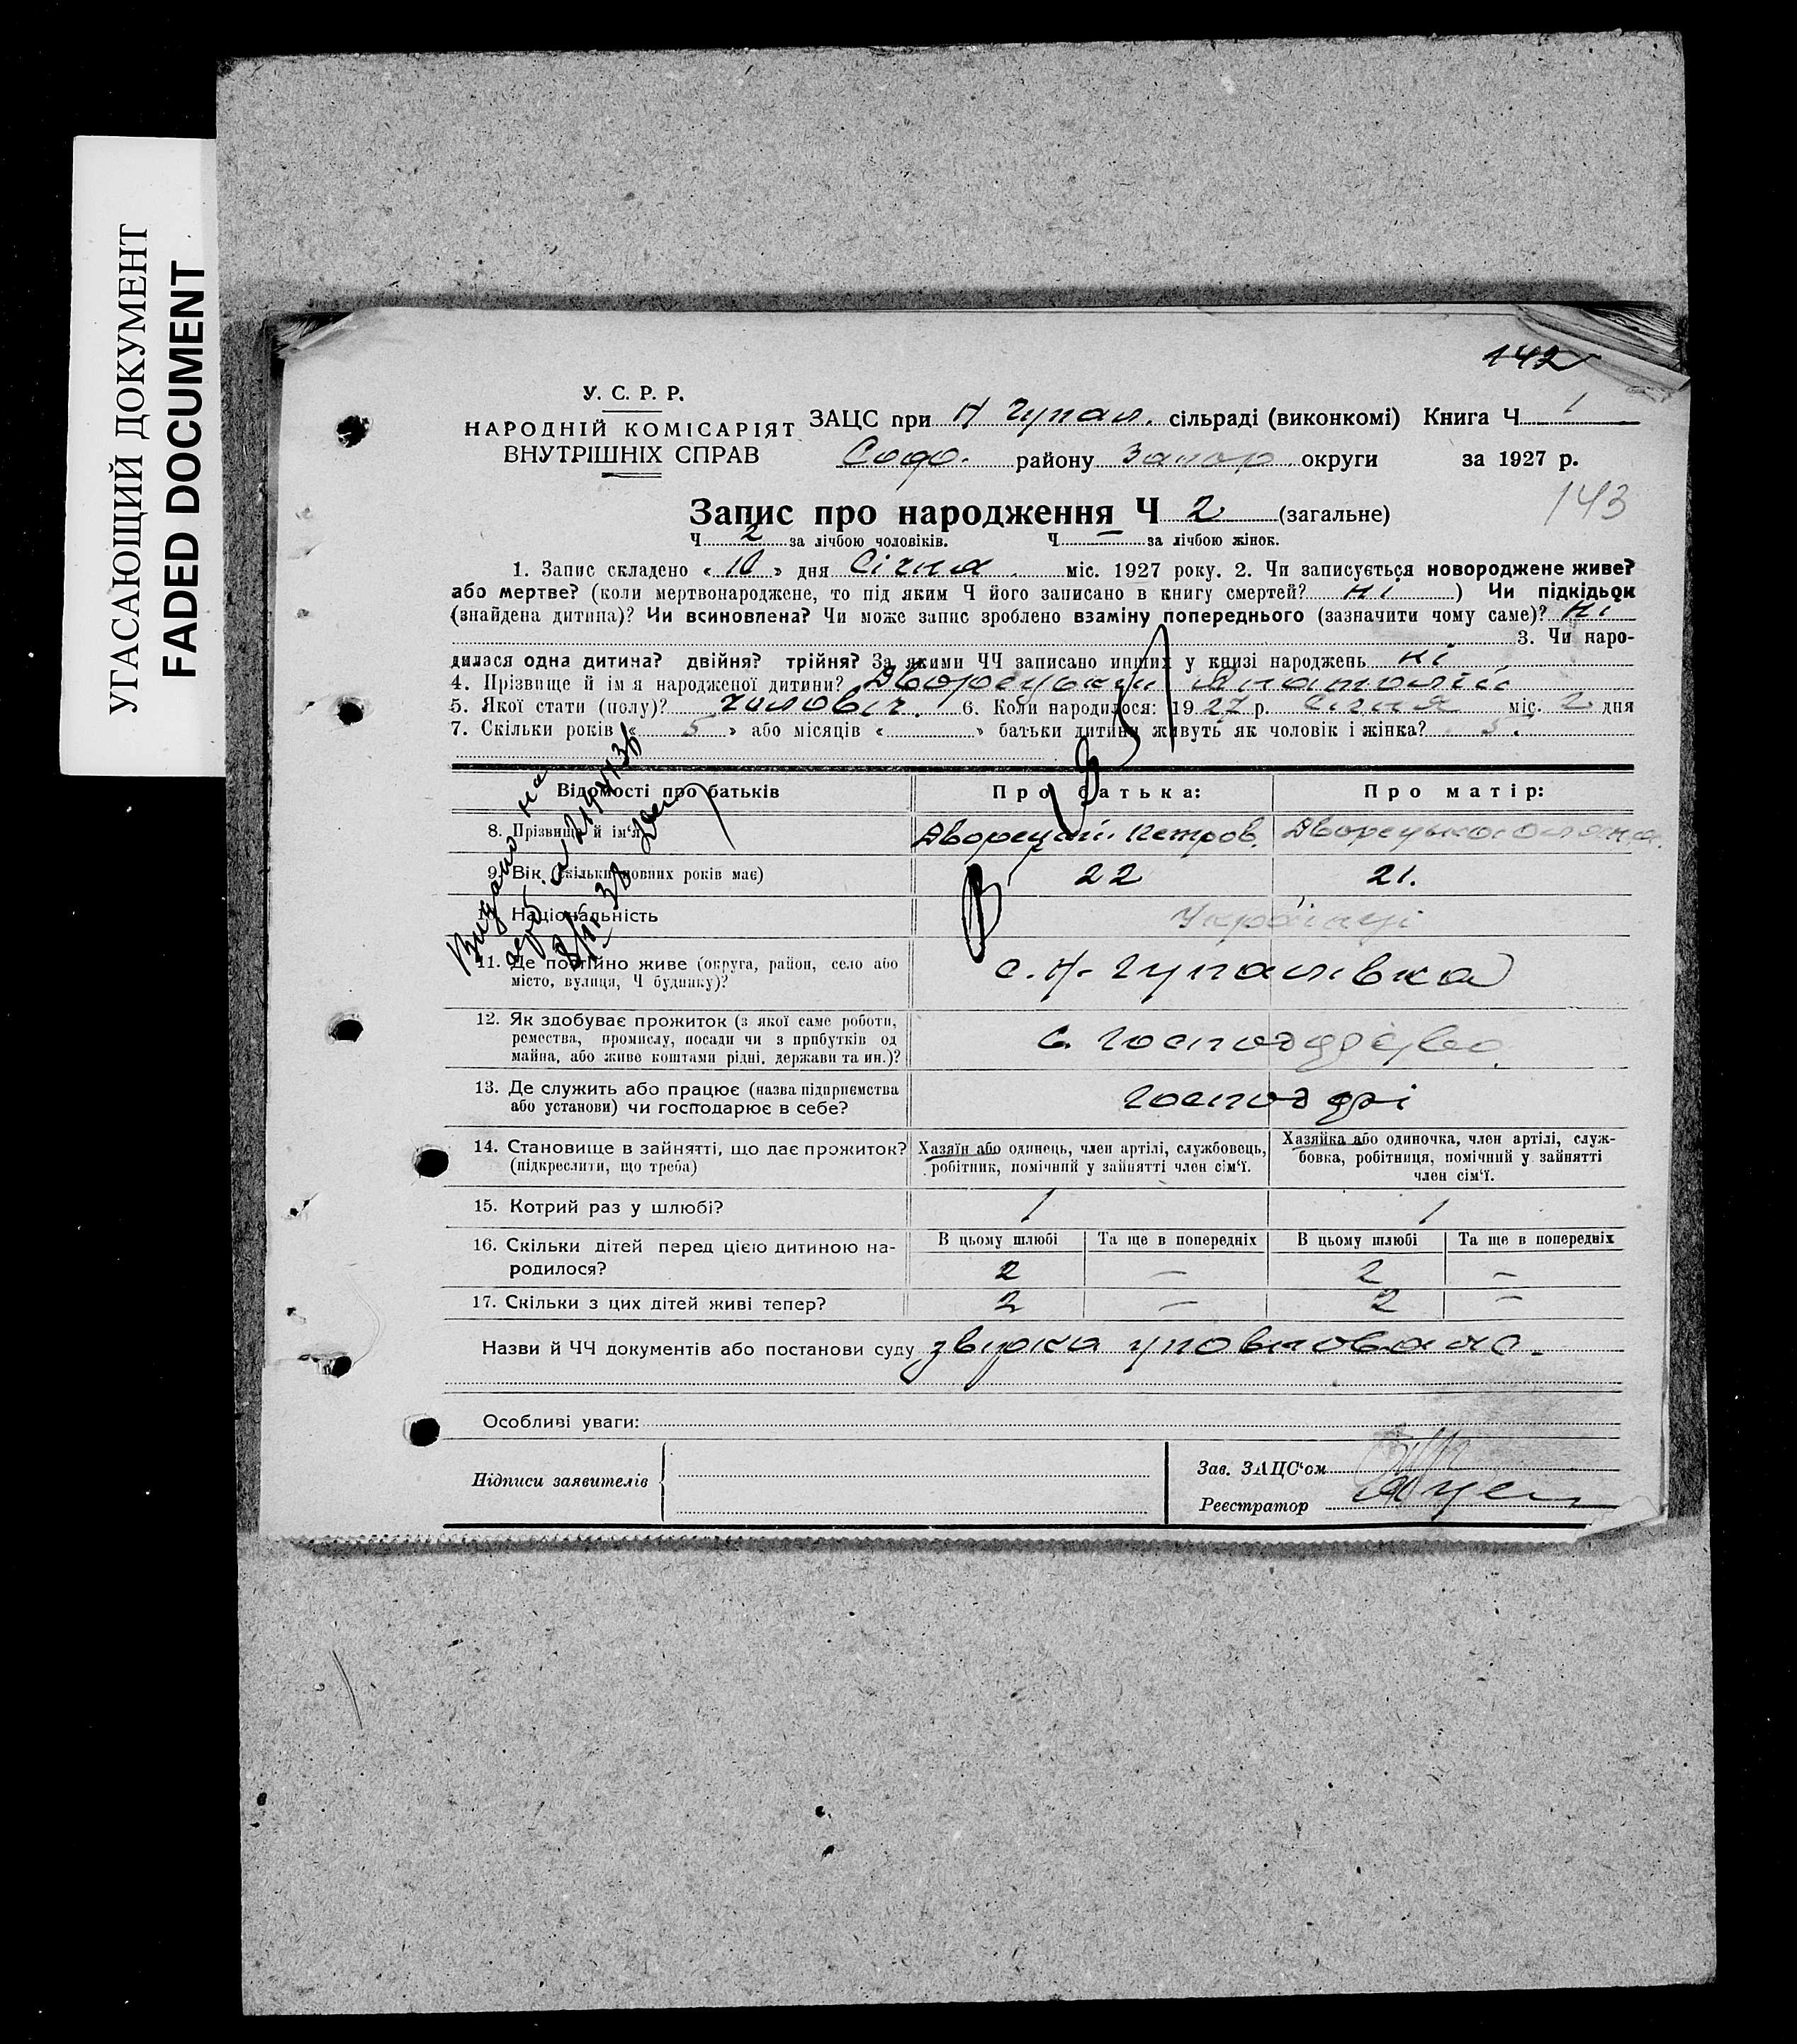 УГАСАЮЩИЙ ДОКУМЕНТ
FADED DOCUMENT
142
У. С. Р. Р.
НАРОДНІЙ КОМІСАРІЯТ
ВНУТРІШНІХ СПРАВ
ЗАЦС при Н Гупал. сільраді (виконкомі) Книга Ч 1
Софо. району Запор округи за 1927 р.
143
Запис про народження Ч 2 (загальне)
Ч 2 за лічбою чоловіків. Ч — за лічбою жінок.
1. Запис складено « 10 » дня Січня . міс. 1927 року. 2. Чи записується новороджене живе?
або мертве? (коли мертвонароджене, то під яким Ч його записано в книгу смертей? ні ) Чи підкідьок
(знайдена дитина)? Чи всиновлена? Чи може запис зроблено взаміну попереднього (зазначити чому саме)? ні
3. Чи наро-
дилася одна дитина? двійня? трійня? За якими ЧЧ записано инших у книзі народжень ні
4. Прізвище й ім я народженої дитини? Дворецький Анатолій
5. Якої стати (полу)? чиловіч. 6. Коли народилося: 19 27 р. Січня міс. 2 дня
7. Скільки років « 5 » або місяців « » батьки дитини живуть як чоловік і жінка? 5.
Відомості про батьків
Про батька:
Про матір:
8. Прізвище й ім'я
Дворецкий Петров.
Дворецька Оляна.
9. Вік (скільки повних років має)
22
21.
10. Національність
Українці
11. Де постійно живе (округа, район, село або
місто, вулиця, Ч будинку)?
с. Н-Гупалівка
12. Як здобуває прожиток (з якої саме роботи,
ремества, промислу, посади чи з прибутків од
майна, або живе коштами рідні, держави та ин.)?
С.
13. Де служить або працює (назва підприємства
або установи) чи господарює в себе?
14. Становище в зайнятті, що дає прожиток?
(підкреслити, що треба)
Хазяїн або одинець, член артілі, службовець,
робітник, помічний у зайнятті член сім'ї.
Хазяйка або одиночка, член артілі, служ-
бовка, робітниця, помічний у зайнятті
член сім'ї.
15. Котрий раз у шлюбі?
1
1
16. Скільки дітей перед цією дитиною на-
родилося?
В цьому шлюбі
Та ще в попередніх
В цьому шлюбі
Та ще в попередніх
2 — 2 —
17. Скільки з цих дітей живі тепер?
2 — 2 —
Назви й ЧЧ документів або постанови суду
Особливі уваги:
Підписи заявителів
Зав. ЗАЦС'ом
Реєстратор
Видано на